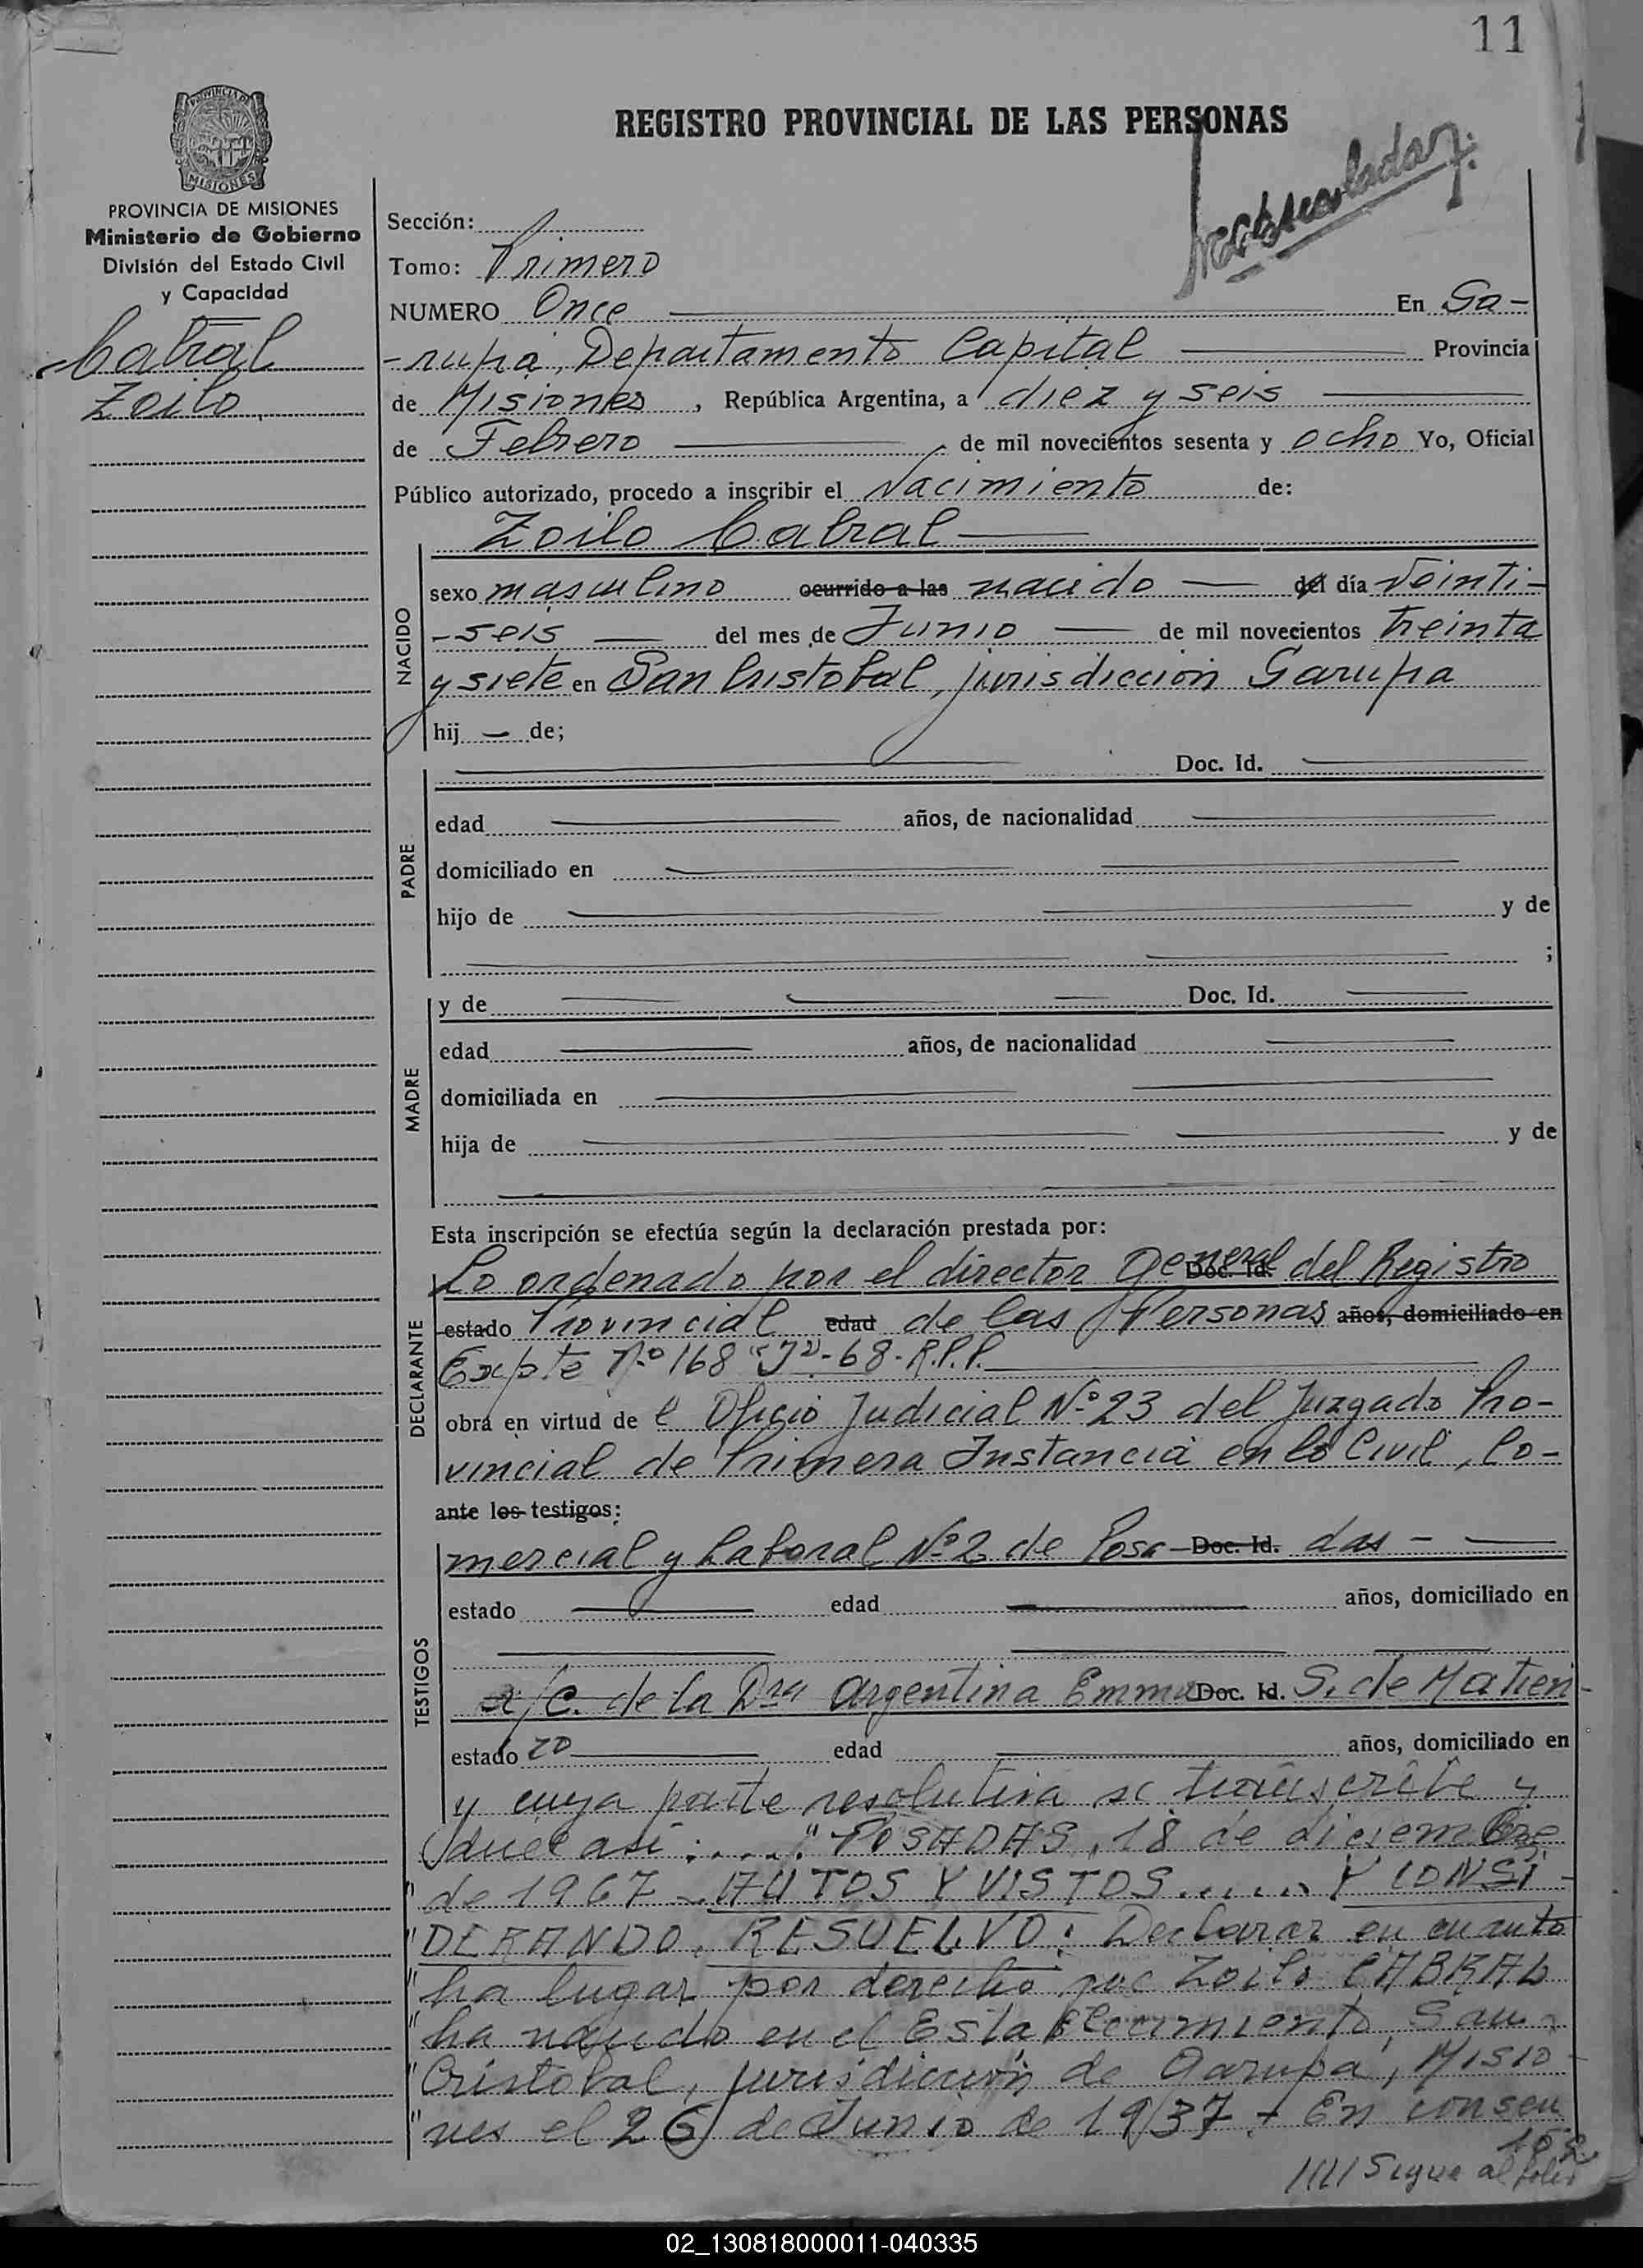 11
REGISTRO PROVINCIAL DE LAS PERSONAS
PROVINCIA DE MISIONES
Ministerio de Gobierno
División del Estado Civil
y Capacidad
Cabral
Zoilo
Sección:
Tomo: Primero
NUMERO Once En Ga-
-rupá, Departamento Capital Provincia
de Misiones, República Argentina, a diez y seis
de Febrero de mil novecientos sesenta y ocho Yo, Oficial
Público autorizado, procedo a inscribir el Nacimiento de:
Zoilo Cabral
NACIDO
sexo masculino ocurrido a las nacido del día Veinti-
-seis del mes de Junio de mil novecientos treinta
y siete en San Cristobal, jurisdicción Garupa
hij - de;
Doc. Id.
PADRE
edad años, de nacionalidad
domiciliado en
hijo de y de
;
MADRE
y de Doc. Id.
edad años, de nacionalidad
domiciliada en
hija de y de
Esta inscripción se efectúa según la declaración prestada por:
DECLARANTE
Lo ordenado por el director General Doc. Id. del Registro
estado Provincial edad de las Personas años, domiciliado en
Expte Nº 168 "J"-68-R.P.P.
obra en virtud de l Oficio Judicial Nº 23 del Juzgado Pro-
vincial de Primera Instancia en lo Civil, Co-
ante los testigos:
TESTIGOS
mercial y Laboral Nº 2 de Posa- Doc. Id. das -
estado edad años, domiciliado en
a/c. de la Dra Argentina Emma Doc. Id. S. de Matien-
estado zo edad años, domiciliado en
y cuya parte resolutiva se transcribe y
dice así: ...." POSADAS, 18 de diciembre
" de 1967 - AUTOS Y VISTOS ..... Y CONSI-
" DERANDO, RESUELVO: Declarar en cuanto
" ha lugar por derecho que Zoilo CABRAL
" ha nacido en el Establecimiento San
" Cristobal, jurisdicción de Garupá, Misio-
" nes el 26 de Junio de 1937 - En consecu
//// Sigue al folio
02_130818000011-040335